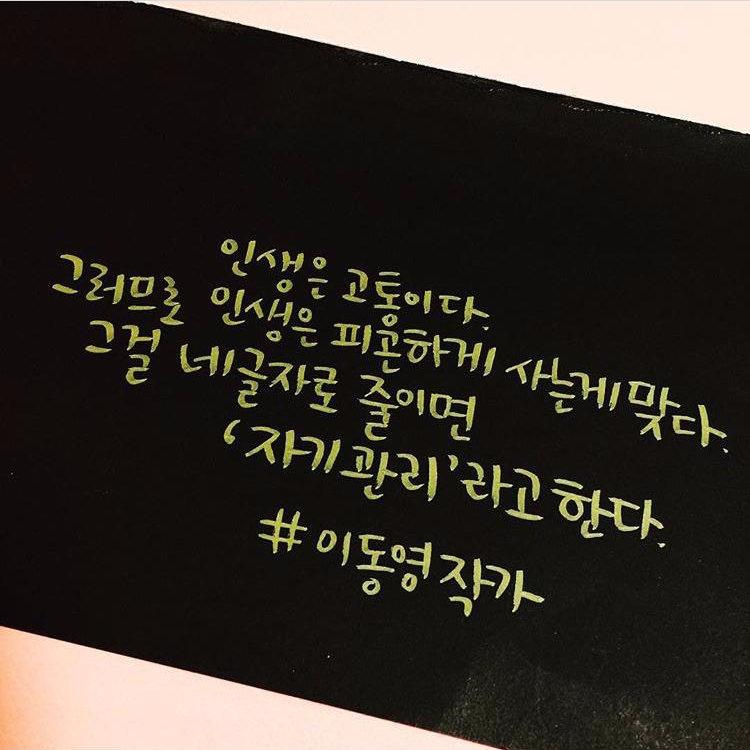 인생은 고통이다.
그러므로 인생은 피곤하게 사는게 맞다.
그걸 네글자로 줄이면
‘자기관리’라고 한다.
#이동영작가